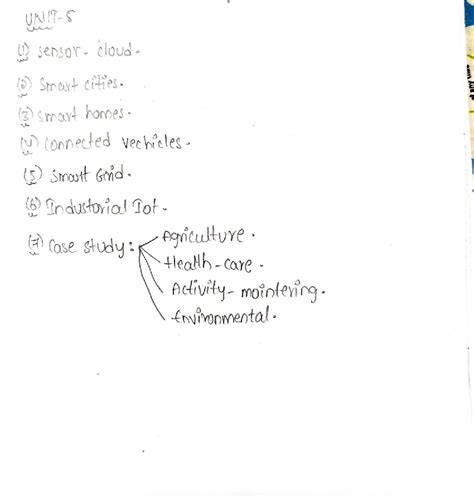 UNIT-5
(1) sensor-cloud.
(2) Smart cities.
(3) smart homes.
(4) Connected vechicles.
(5) Smart Grid.
(6) Industorial Iot.
(7) Case study: Agriculture.
Health-care.
Activity-mointering.
Environmental.